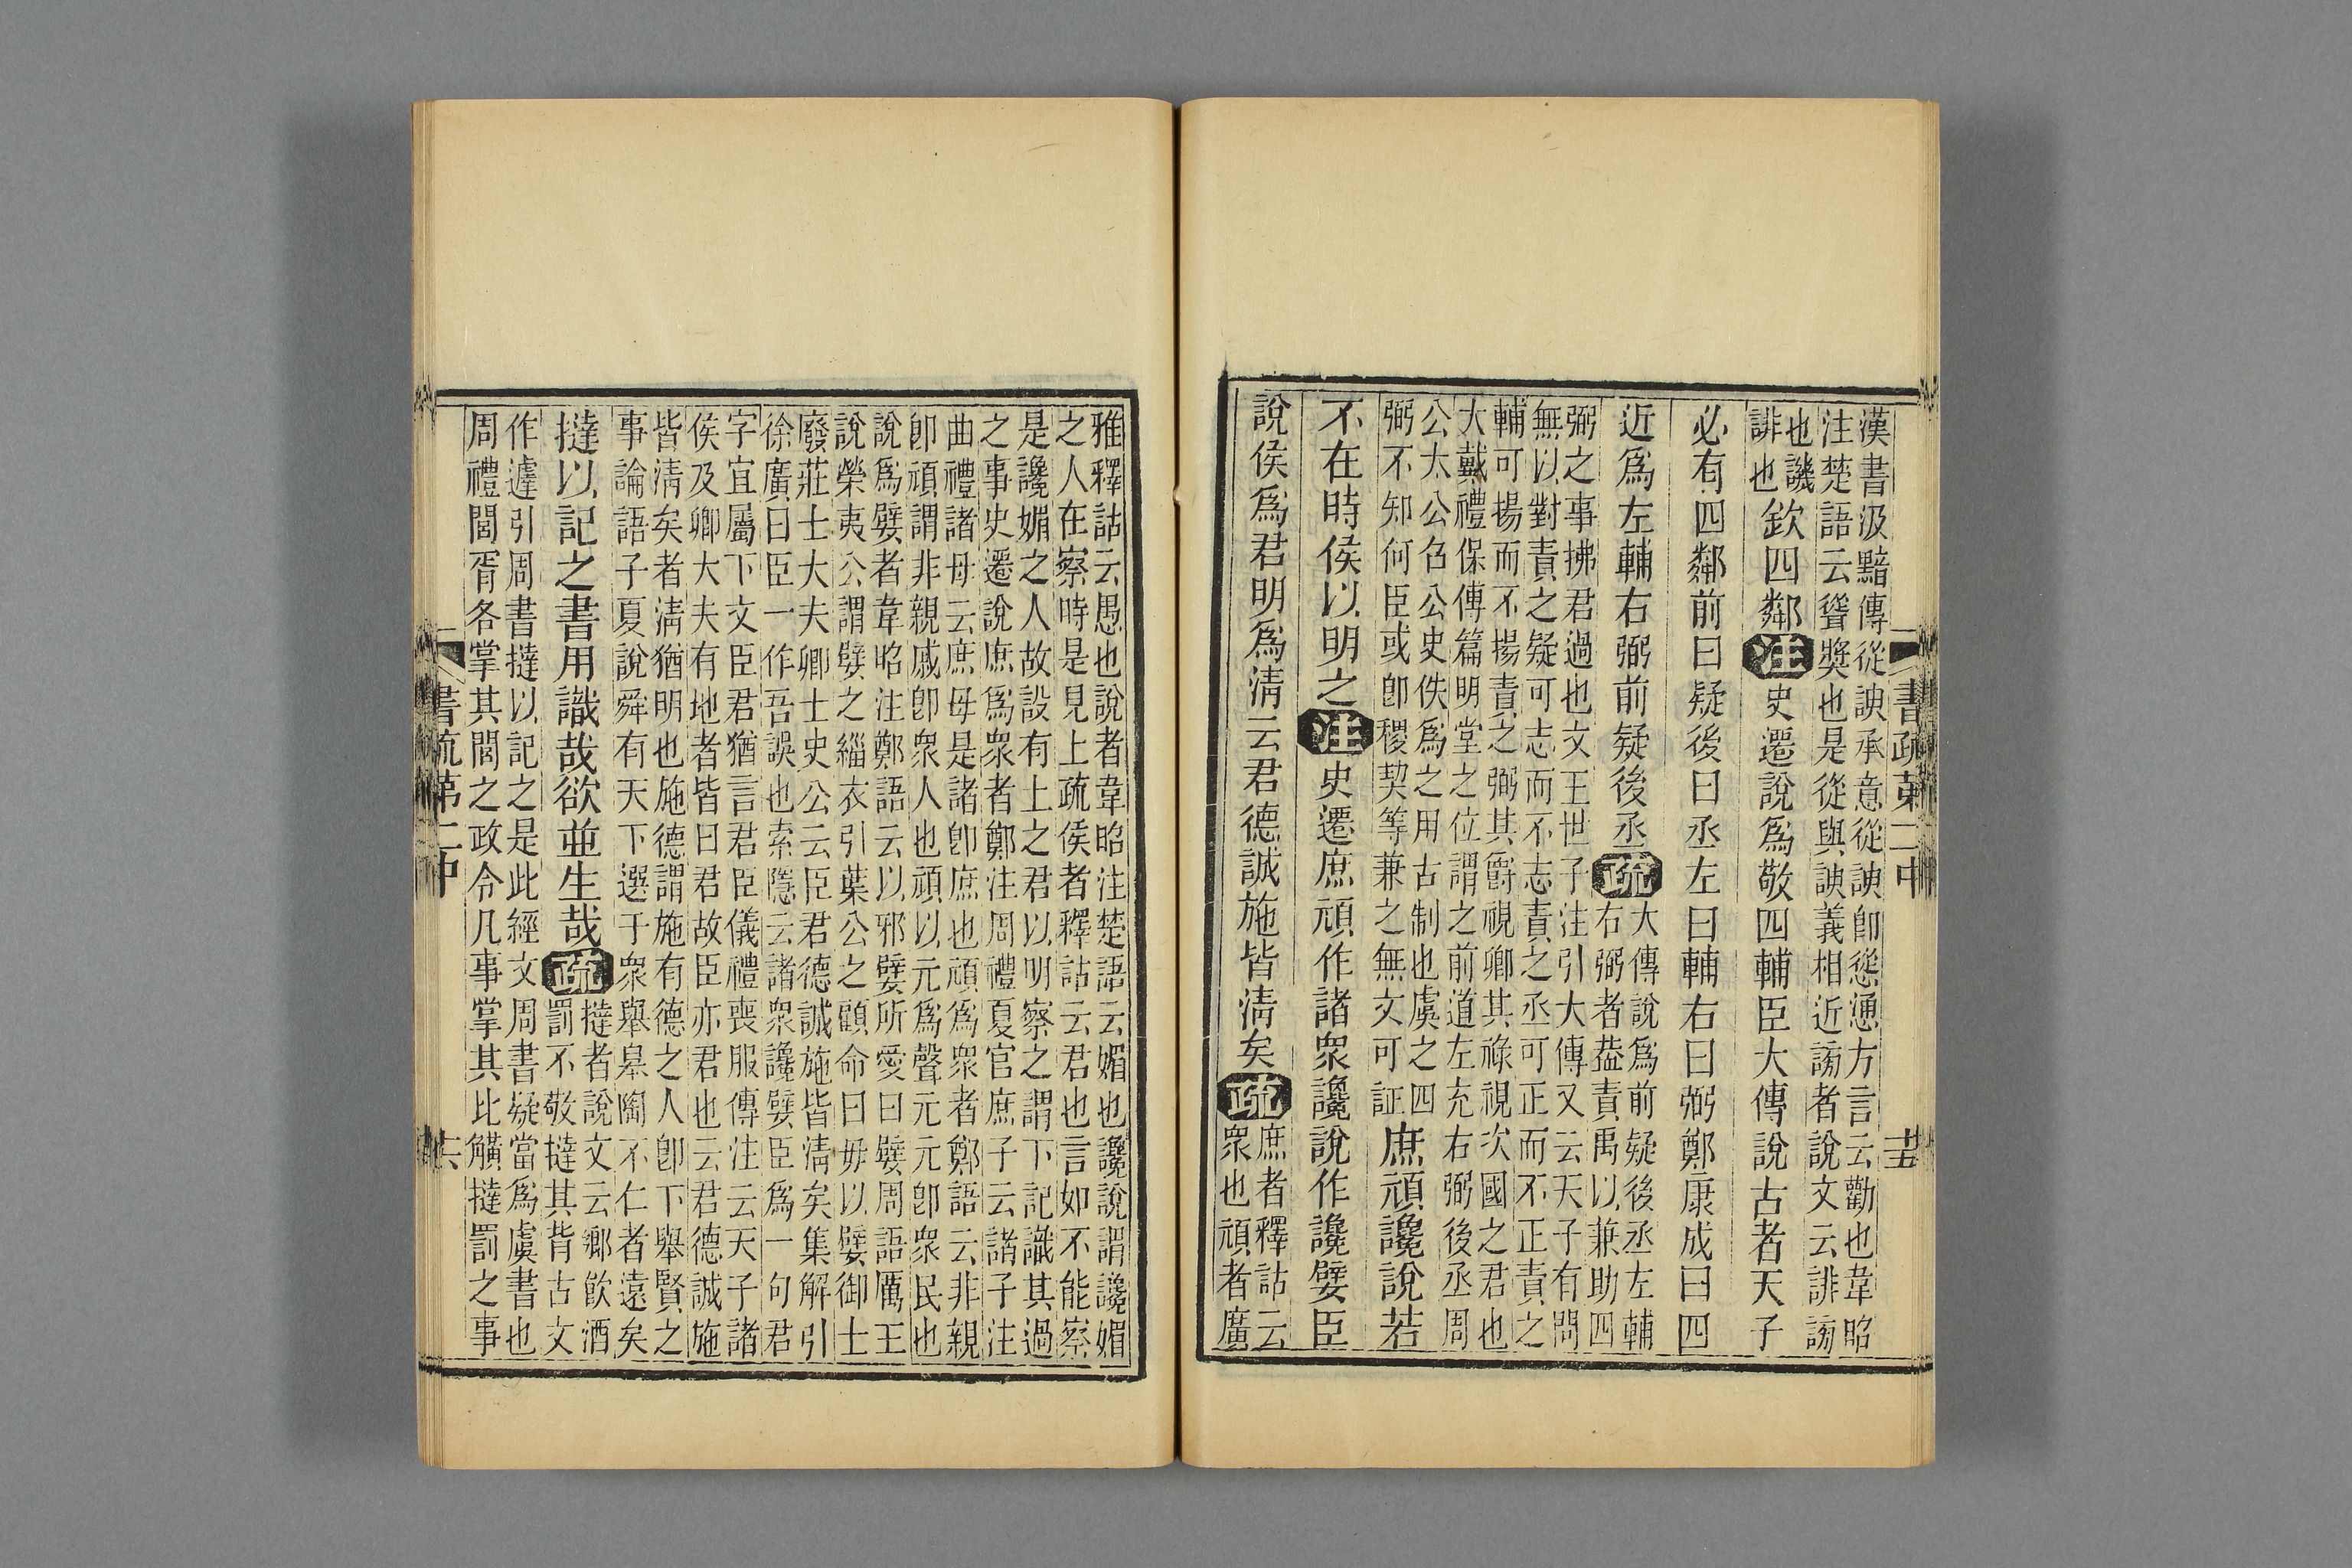 漢書汲黯傳從諛承意從諛卽慫慂方言云勸也韋昭
注楚語云聳獎也是從與諛義相近謗者說文云誹謗
也譏
誹也
欽四鄰注史遷說爲敬四輔臣大傳說古者天子
必有四鄰前曰疑後曰丞左曰輔右曰弼鄭康成曰四
近爲左輔右弼前疑後丞疏
大傳說爲前疑後丞左輔
右弼者葢責禹以兼助四
弼之事拂君過也文王世子注引大傳又云天子有問
無以對責之疑可志而不志責之丞可正而不正責之
輔可揚而不揚責之弼其爵視卿其祿視次國之君也
大戴禮保傅篇明堂之位謂之前道左充右弼後丞周
公太公召公史佚爲之用古制也虞之四
弼不知何臣或卽稷契等兼之無文可証
庶頑讒說若
不在時侯以明之注史遷庶頑作諸衆讒說作讒嬖臣
說侯爲君明爲清云君德誠施皆清矣疏
庶者釋詁云
衆也頑者廣
雅釋詁云愚也說者韋昭注楚語云媚也讒說謂讒媚
之人在察時是見上疏侯者釋詁云君也言如不能察
是讒媚之人故設有上之君以明察之謂下記識其過
之事史遷說庶爲衆者鄭注周禮夏官庶子云諸子注
曲禮諸母云庶母是諸卽庶也頑爲衆者鄭語云非親
卽頑謂非親戚卽衆人也頑以元爲聲元元卽衆民也
說爲嬖者韋昭注鄭語云以邪嬖所愛曰嬖周語厲王
說榮夷公謂嬖之緇衣引葉公之顧命曰毋以嬖御士
廢莊士大夫卿士史公云臣君德誠施皆清矣集解引
徐廣曰臣一作吾誤也索隱云諸衆讒嬖臣爲一句君
字宜屬下文臣君猶言君臣儀禮喪服傳注云天子諸
侯及卿大夫有地者皆曰君故臣亦君也云君德誠施
皆清矣者清猶明也施德謂施有德之人卽下舉賢之
事論語子夏說舜有天下選于衆舉皋陶不仁者遠矣
撻以記之書用識哉欲並生哉疏
撻者說文云鄉飲酒
罰不敬撻其背古文
作𨔶引周書撻以記之是此經文周書疑當爲虞書也
周禮閭胥各掌其閭之政令凡事掌其比觵撻罰之事
書疏第二中
十五
書疏第二中
十六